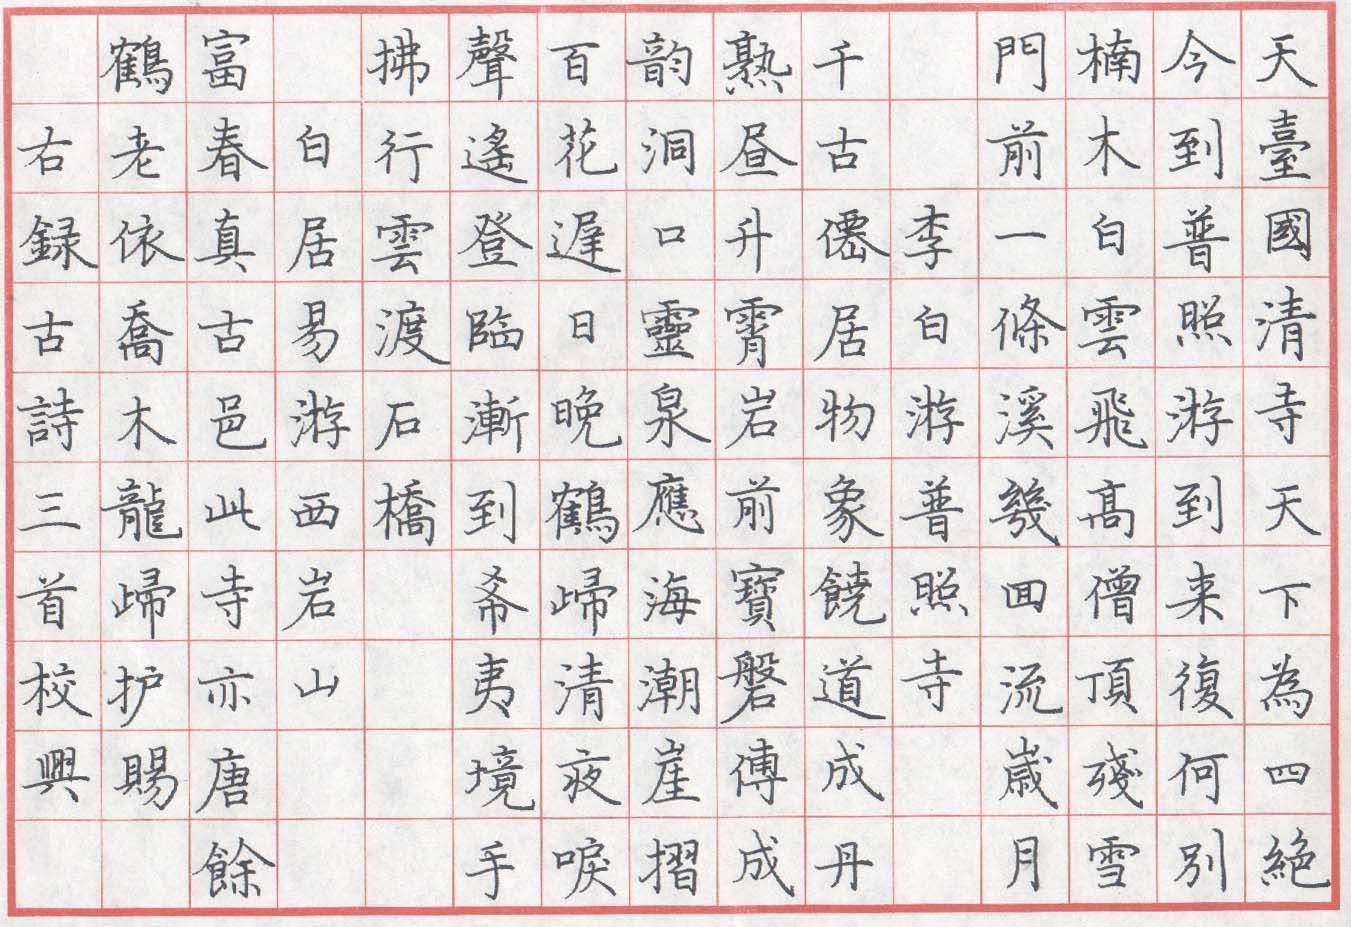 天臺國清寺天下為四絕
今到普照游到来復何別
楠木白雲飛高僧頂殘雪
門前一條溪幾回流歲月
李白游普照寺
千古僊居物象饒道成丹
熟昼升霄岩前寶磐傳成
韵洞口靈泉應海潮崖摺
百花遲日晚鶴歸清夜唳
聲遙登臨漸到希夷境手
拂行雲渡石橋
白居易游西岩山
富春真古邑此寺亦唐餘
鶴老依喬木龍歸护賜
右録古詩三首校興